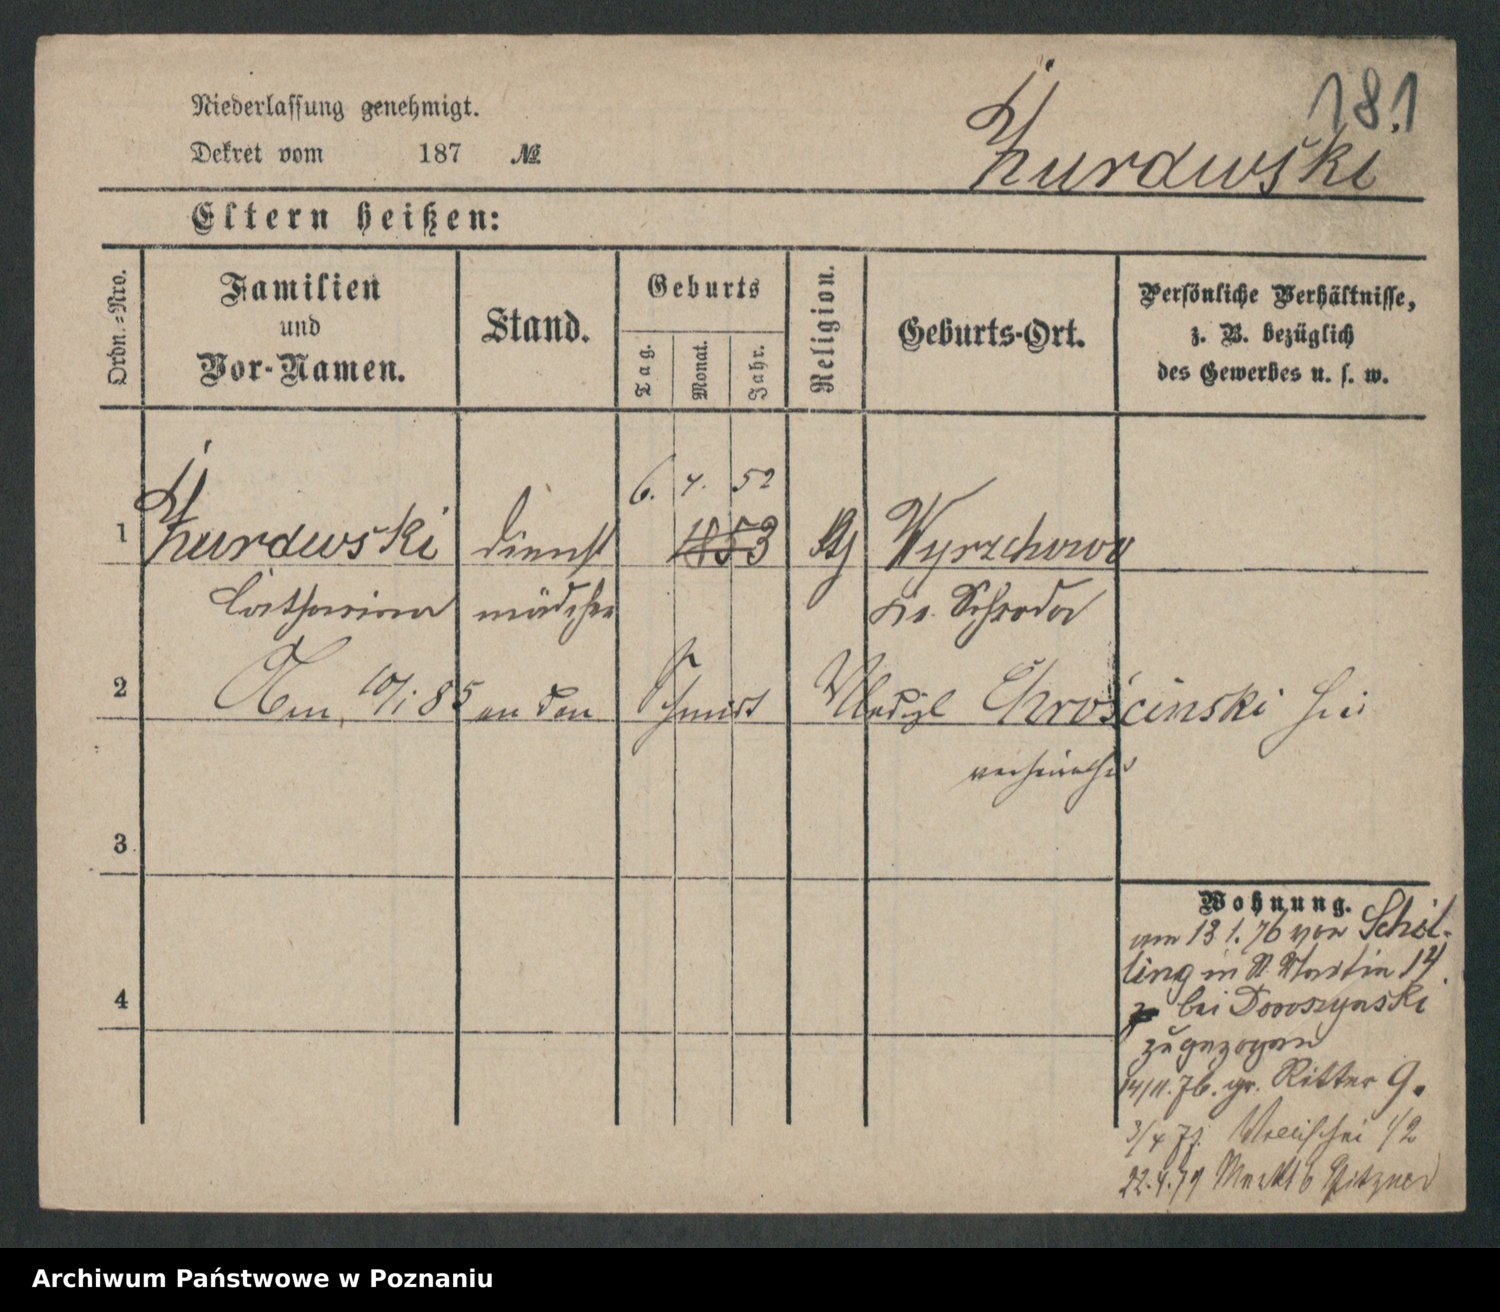 181
Niederlassung genehmigt.
Dekret vom 187 №
Żurawski
Eltern heißen:
Ordn.-Nro.
Familien
und
Vor-Namen.
Stand.
Geburts
Tag.
Monat.
Jahr.
Religion.
Geburts-Ort.
Persönliche Verhältnisse,
z. B. bezüglich
des Gewerbes u. s. w.
6. 4. 52
1 Żurawski Dienst 1853 Wyrzchowo
Catharina mädchen Kr. Schroda
2 Am 10/1 85 an den Wladisl Chrościnski hier
verheirathet
3
Wohnung.
am 13 1. 76 von Schil-
ling in St. Martin 14
4
bei Doroszynski
zugezogen
14/11. 76. gr. Ritter 9.
3/4 77. Wallischei 42
22.4.79 Markt 6 Pitzner
Archiwum Państwowe w Poznaniu